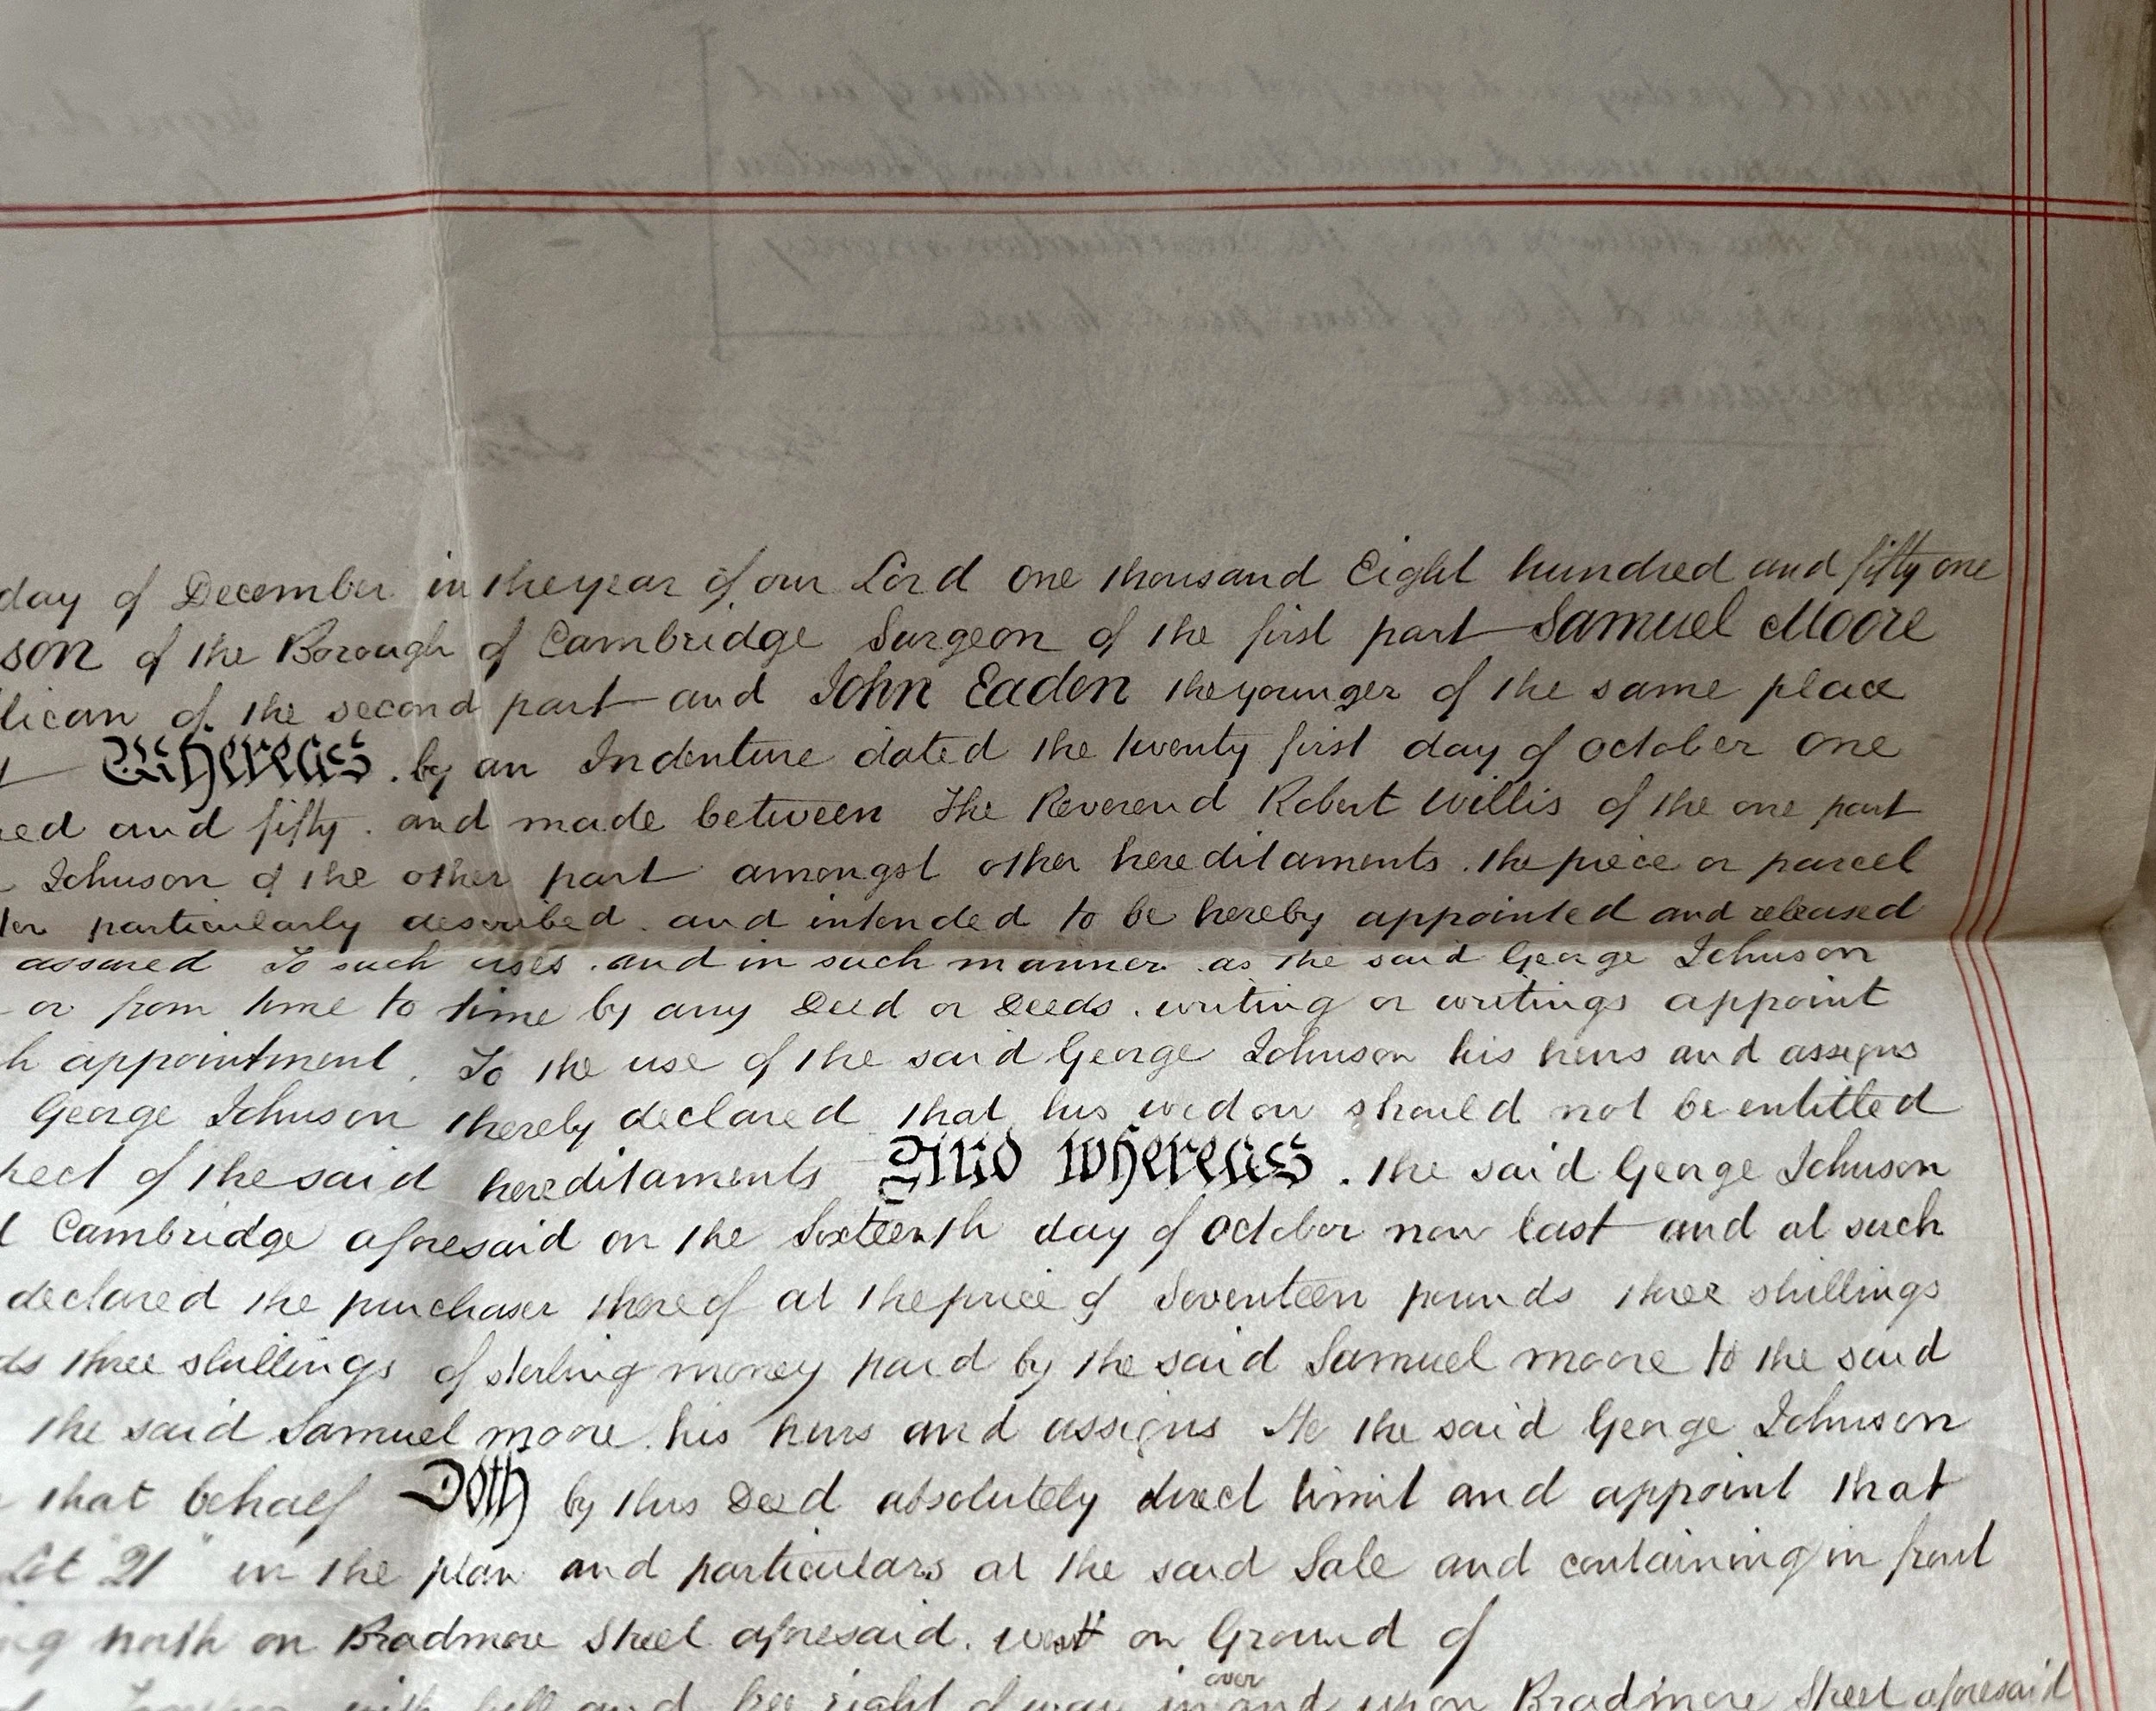 day of December in the year of our Lord one thousand Eight hundred and fifty one
son of the Borough of Cambridge Surgeon of the first part Samuel Moore
lican of the second part and John Eaden the younger of the same place
Whereas . by an Indenture dated the twenty first day of October one
ed and fifty . and made between The Reverend Robert Willis of the one part
Johnson of the other part amongst other hereditaments . the piece or parcel
ter particularly described . and intended to be hereby appointed and released
assured To such uses . and in such manner . as the said George Johnson
or from time to time by any Deed or Deeds . writing or writings appoint
h appointment . To the use of the said George Johnson his heirs and assigns
George Johnson thereby declared that his widow should not be entitled
pect of the said hereditaments And whereas . the said George Johnson
Cambridge aforesaid on the Sixteenth day of October now last and at such
declared the purchaser thereof at the price of Seventeen pounds three shillings
ds three shillings of sterling money paid by the said Samuel Moore to the said
the said Samuel Moore . his heirs and assigns He the said George Johnson
that behalf Doth by this Deed absolutely direct limit and appoint that
Lot "21" in the plan and particulars at the said Sale and containing in front
ng north on Bradmore Street aforesaid . west on Ground of
over
with full and free right of way in and upon Bradmore Street aforesaid